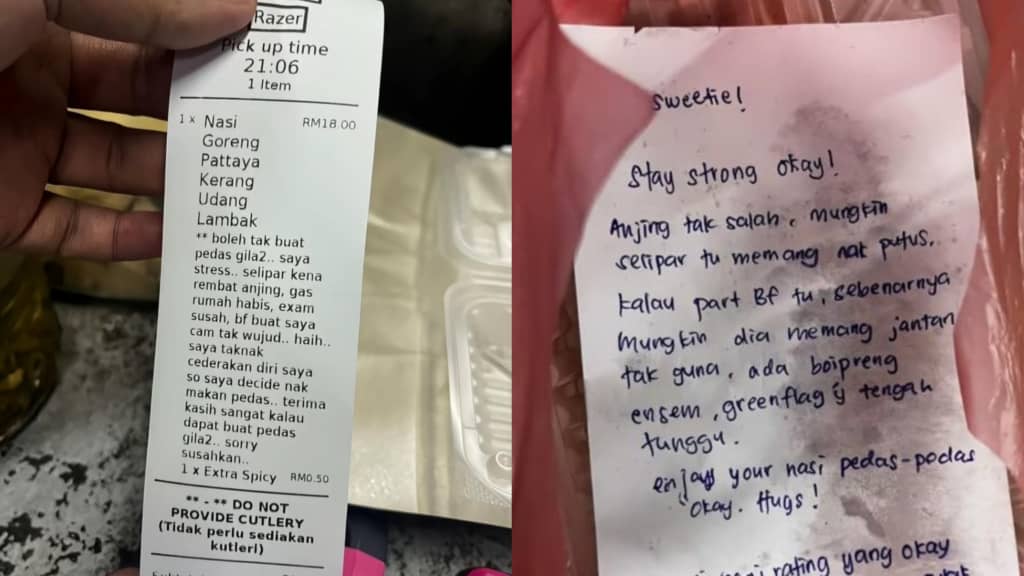 Razer
Pick up time
21:06
1 Item
1 x Nasi RM18.00
Goreng
Pattaya
Kerang
Udang
Lambak
** boleh tak buat
pedas gila2.. saya
stress.. selipar kena
rembat anjing, gas
rumah habis, exam
susah, bf buat saya
cam tak wujud.. haih..
saya taknak
cederakan diri saya
so saya decide nak
makan pedas.. terima
kasih sangat kalau
dapat buat pedas
gila2.. sorry
susahkan..
1 x Extra Spicy RM0.50
** - ** DO NOT
PROVIDE CUTLERY
(Tidak perlu sediakan
kutleri)
sweetie!
Stay strong okay!
Anjing tak salah, mungkin
selipar tu memang nak putus.
kalau part Bf tu, sebenarnya
mungkin dia memang jantan
tak guna, ada boipreng
ensem, greenflag yg tengah
tunggu.
enjayy your nasi pedas-pedas
okay. Hugs!
rating yang okay